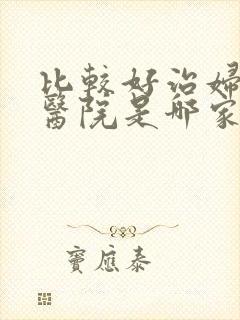 比較好治婦
醫院是哪家
竇應泰